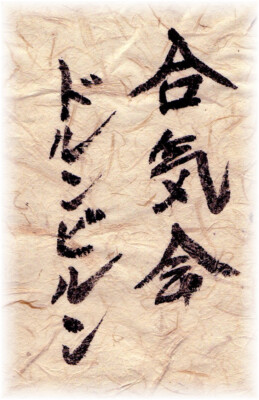 合気会
ドルンビルン